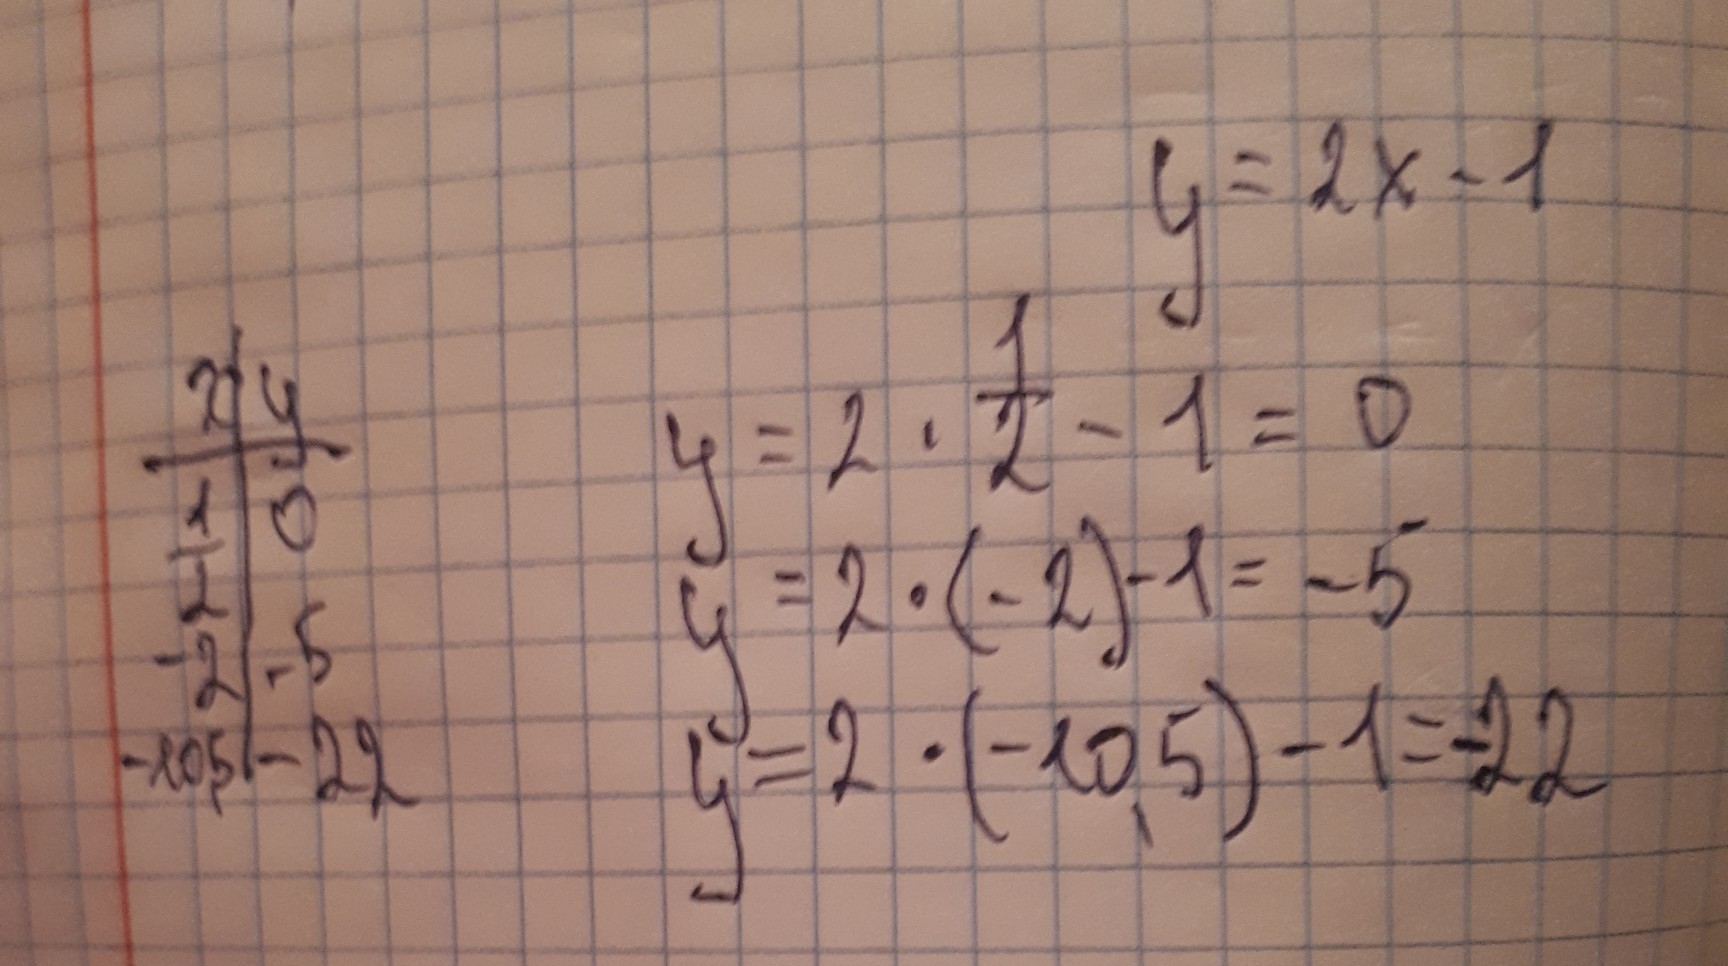 y = 2x - 1
x y
1/2 0
-2 -5
-10,5 -22
y = 2 · 1/2 - 1 = 0
y = 2 · (-2) - 1 = -5
y = 2 · (-10,5) - 1 = -22